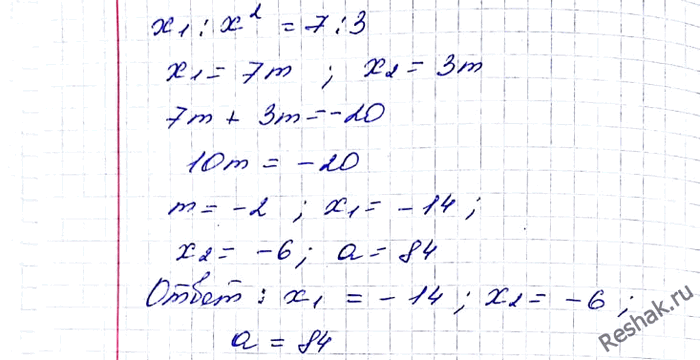 x₁ : x² = 7 : 3
x₁ = 7m ; x₂ = 3m
7m + 3m = -20
10m = -20
m = -2 ; x₁ = -14 ;
x₂ = -6 ; a = 84
Ответ : x₁ = -14 ; x₂ = -6 ;
a = 84
Reshak.ru